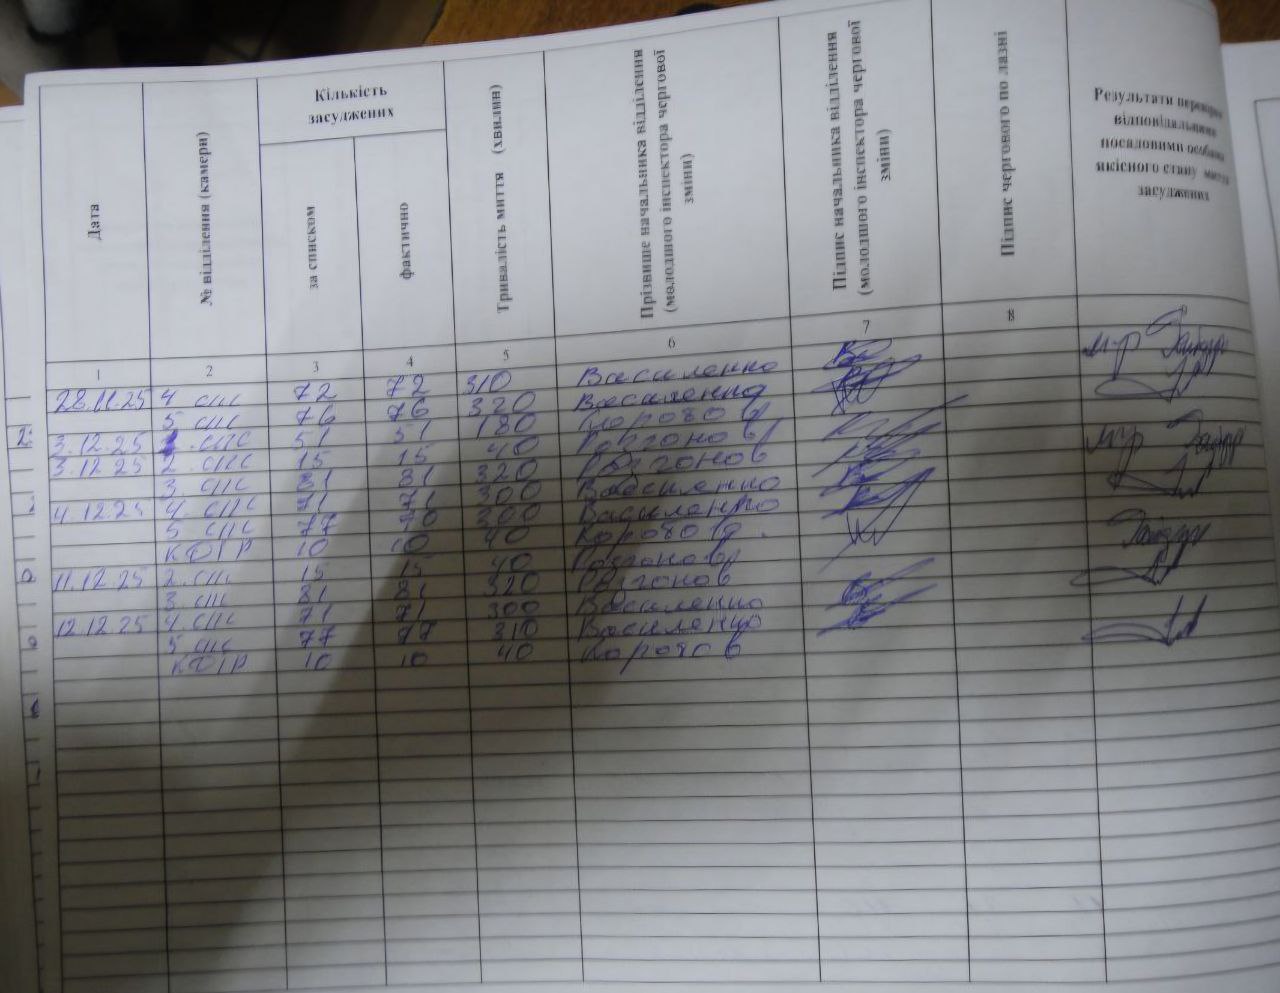 Дата
№ відділення (камери)
Кількість
засуджених
за списком
фактично
Тривалість миття (хвилин)
Прізвище начальника відділення
(молодшого інспектора чергової
зміни)
Підпис начальника відділення
(молодшого інспектора чергової
зміни)
Підпис чергового по лазні
Результати перевірки
відповідальними
посадовими особами
якісного стану миття
засуджених
1 2 3 4 5 6 7 8 9
28.11.25 4 спс 72 72 310 Василенко
5 спс 76 76 320 Василенко
3.12.25 спс 51 51 180 Коротов
3.12.25 2. спс 15 15 40
3. спс 81 81 320
4.12.25 4. спс 71 71 300 Василенко
5 спс 77 300 Василенко
10 10 40
11.12.25 2. спс 15 15 40
3. спс 81 81 320
12.12.25 4. спс 71 71 300 Василенко
5 спс 77 77 310 Василенко
10 10 40 Коротов